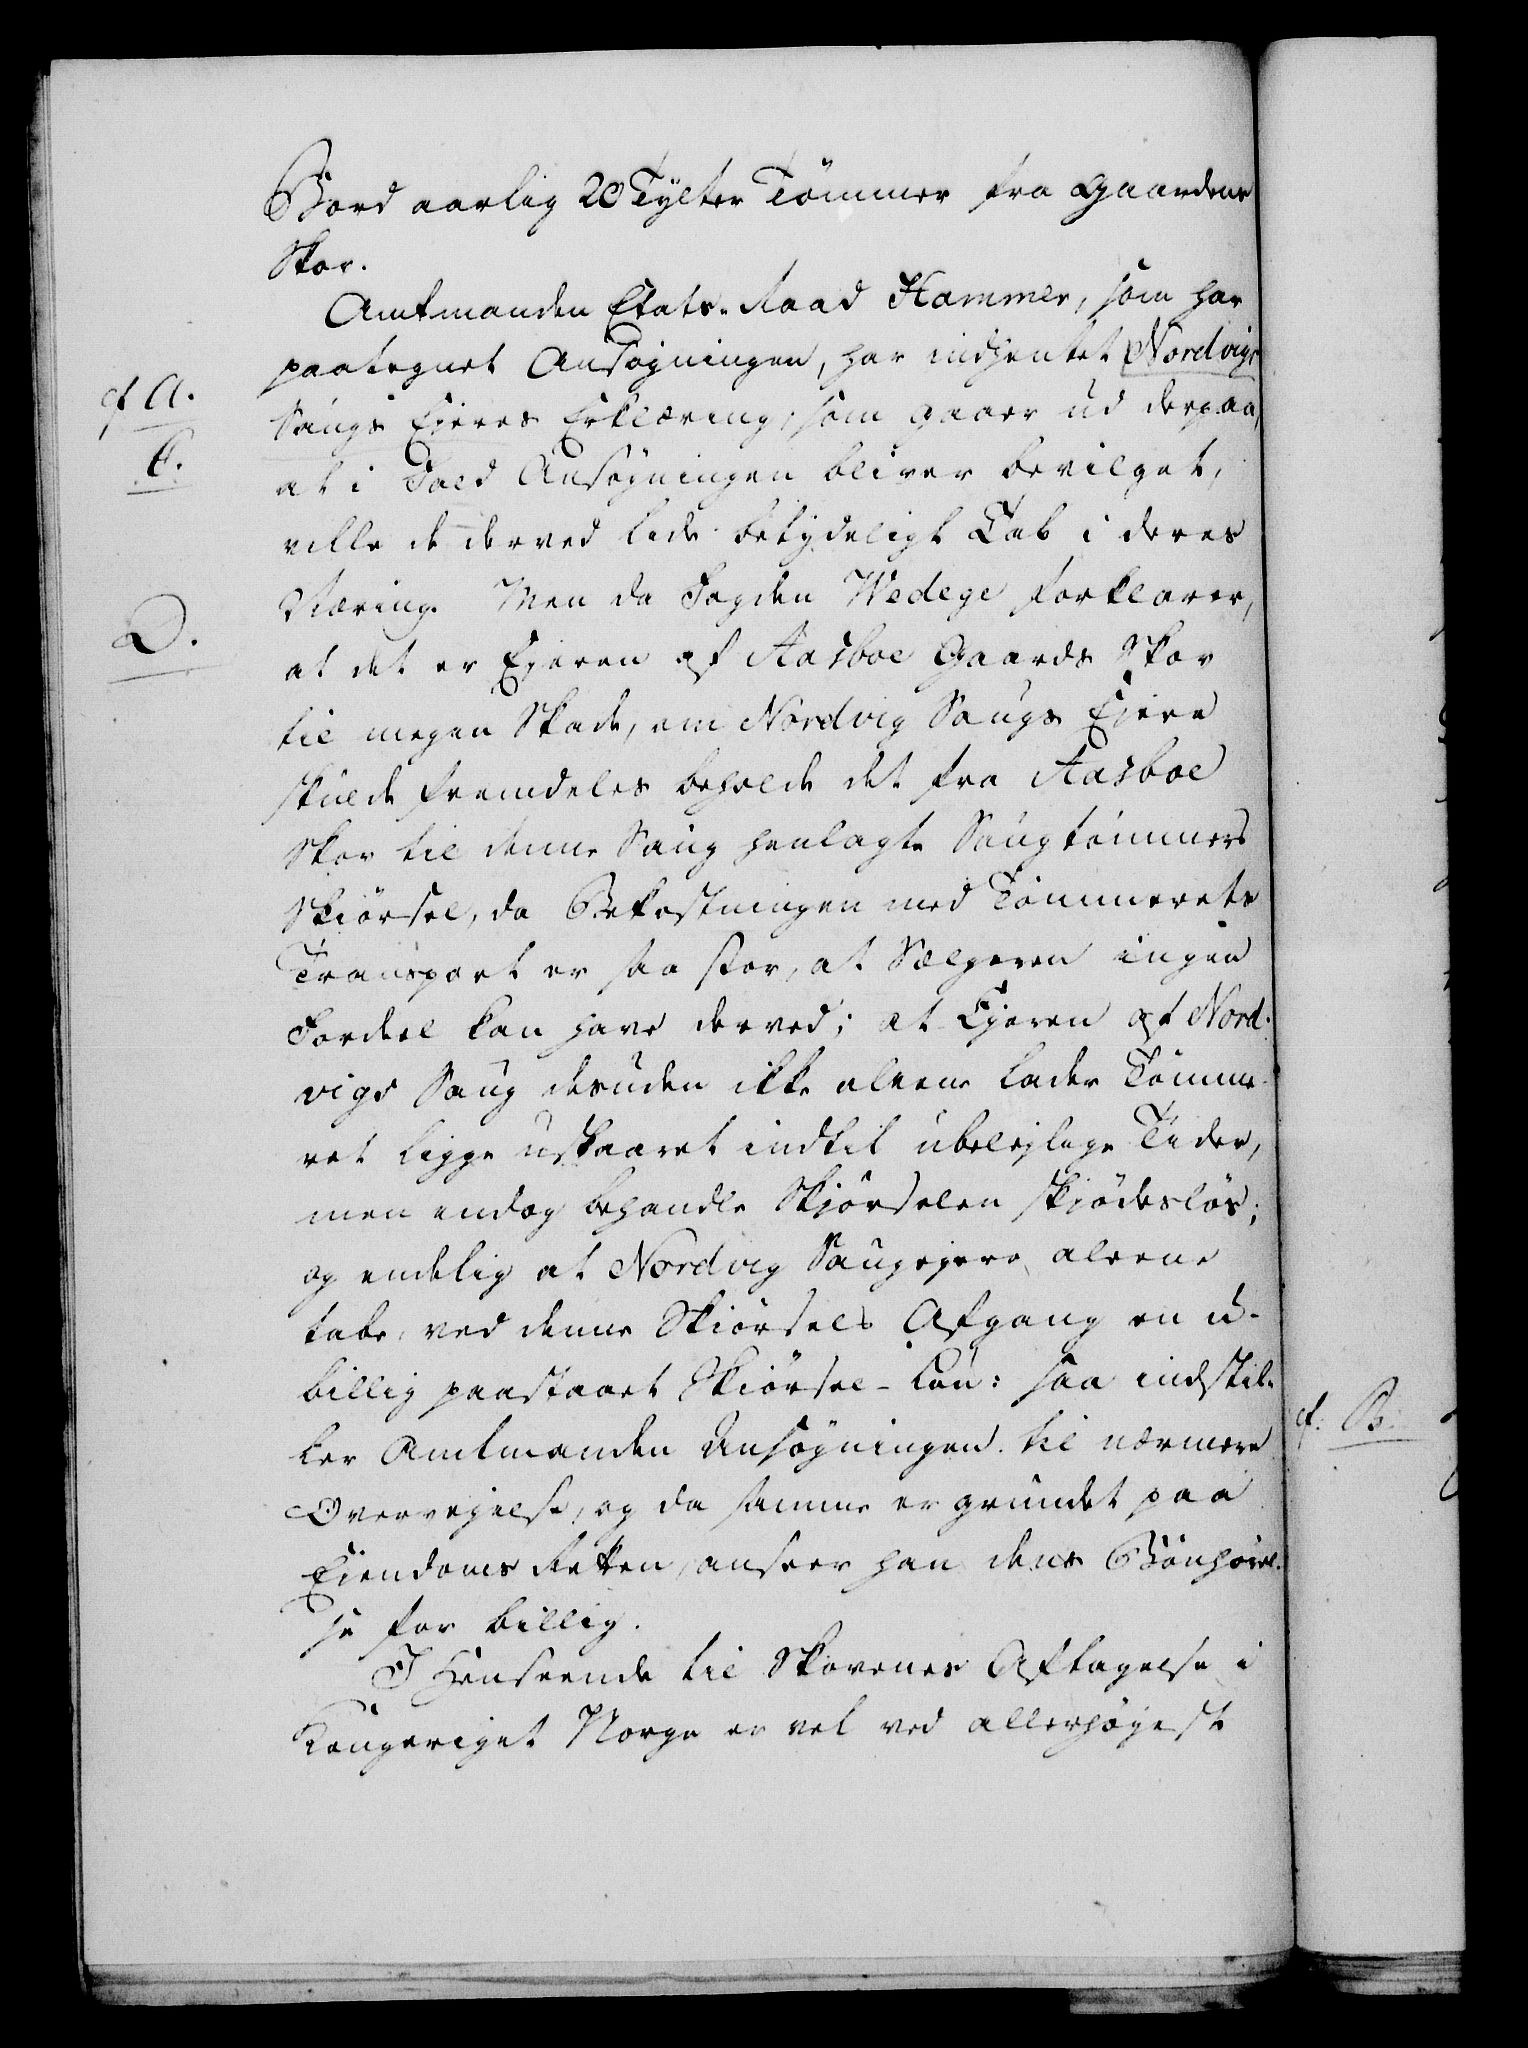 Bord aarlig 20 Tylter Tömmer fra Gaardens
Skov.
Amtmanden Etats-Raad Hammer, som har
paategnet Ansøgningen, har indhentet Nordvigs
cf A.
Saugs Ejeres Erklæring, som gaaer ud derpaa,
C.
at i Fald Ansøgningen bliver bevilget,
ville de derved lide betydeligt Tab i deres
D.
Næring. Men da Fogden Wedege forklarer,
at det er Ejeren af Aasboe Gaards Skov
til megen Skade, om Nordvig Saugs Ejere
skulde fremdeles beholde det fra Aasboe
Skov til denne Saug henlagte Saugtömmers
Skiörsel, da Bekostningen med Tömmerets
Transport er saa stor, at Sælgeren ingen
Fordeel kan have derved; at Ejeren af Nord-
vigs Saug desuden ikke aleene lader Tömme-
ret ligge uskaaret indtil ubelejlige Tider,
men endog behandle Skjörselen skjödeslös;
og endelig at Nordvig Saugejere aleene
tabe, ved denne Skiörsels Afgang en u-
billig paastaaet Skiörsel-Lön: saa indstil-
ler Amtmanden Ansøgningen til nærmere
Overvejelse, og da samme er grundet paa
Eiendoms Retten, anseer han dens Bönhörel-
se for billig.
I Henseende til Skovenes Aftagelse i
Kongeriget Norge er vel ved allerhöyest
cf. B.